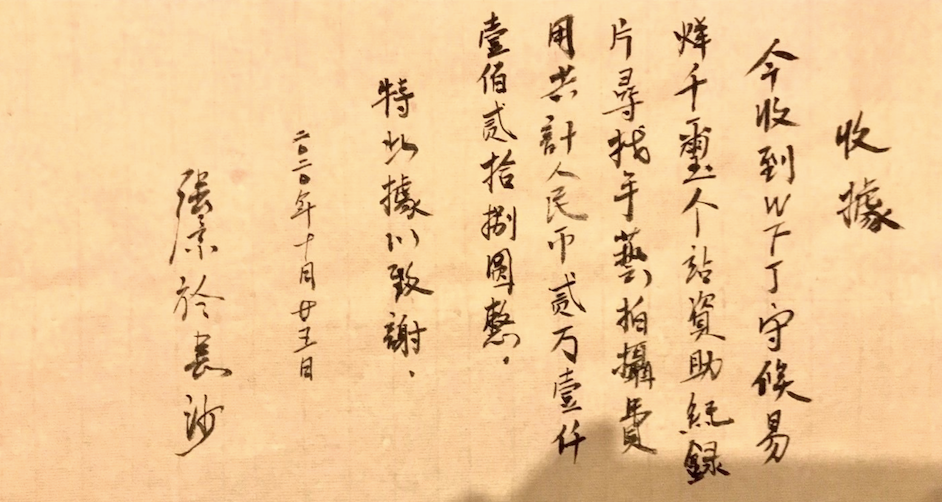 收據
今收到WTT守候易
烊千璽个站資助紀録
片尋找手藝拍攝費
用共計人民币贰万壹仟
壹佰贰拾捌圓整。
特此據以致謝。
二〇二〇年十月廿五日
張景於長沙